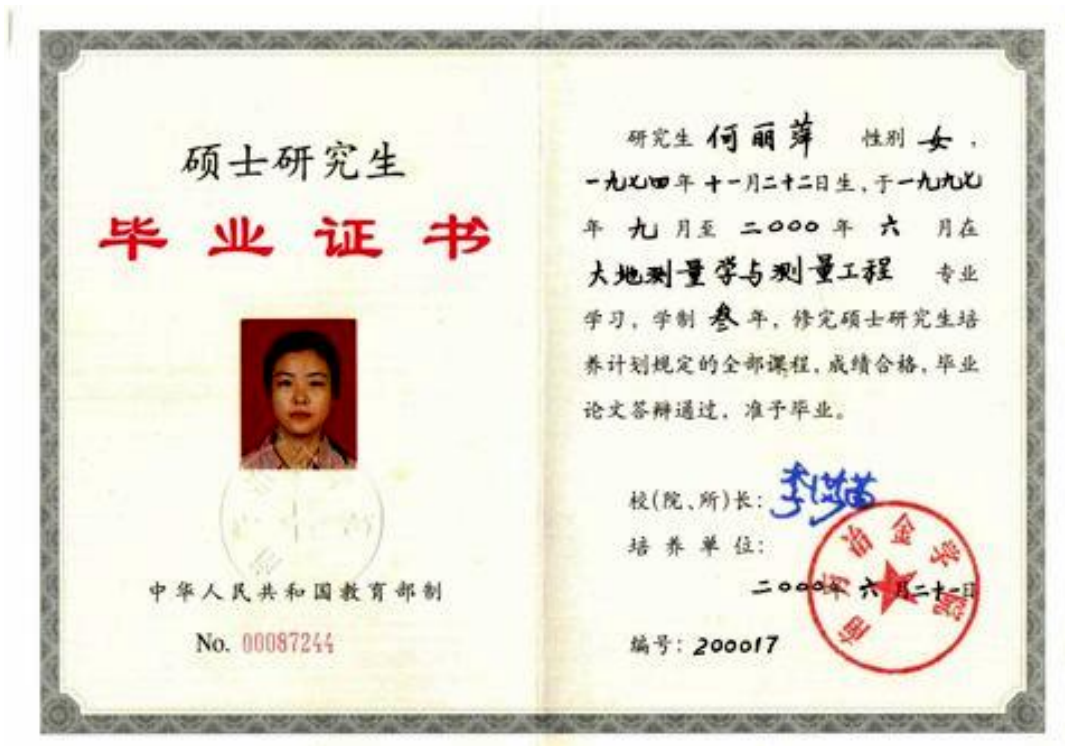 硕士研究生
毕业证书
中华人民共和国教育部制
No. 00087244
研究生 何丽萍 性别 女，
一九七四年十一月二十二日生，于一九九七
年 九 月至 二〇〇〇 年 六 月在
大地测量学与测量工程 专业
学习，学制 叁 年，修完硕士研究生培
养计划规定的全部课程，成绩合格，毕业
论文答辩通过，准予毕业。
校(院、所)长：
培养单位：
南方冶金学院
二〇〇〇年 六 月二十一日
编号：200017